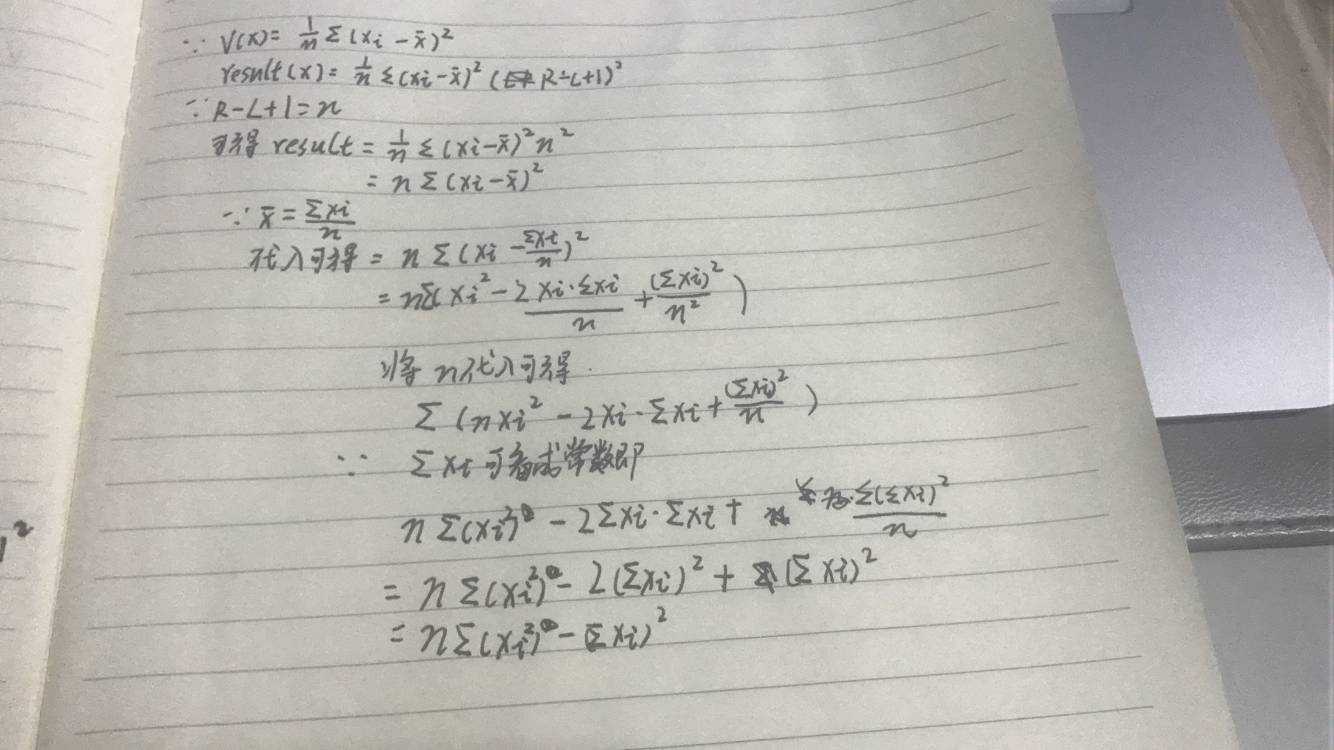 ∵ V(x)= 1/n Σ(xi - x̄)²
result(x)= 1/n Σ(xi-x̄)² (R-L+1)²
∵ R-L+1=n
可得 result = 1/n Σ(xi-x̄)² n²
= n Σ(xi-x̄)²
∵ x̄ = Σxi/n
代入可得 = n Σ(xi - Σxi/n)²
= nΣ(xi² - 2xi·Σxi/n + (Σxi)²/n²)
将 n 代入可得.
Σ(nxi² - 2xi·Σxi + (Σxi)²/n)
∵ Σxi 可看成常数即
n Σ(xi²) - 2Σxi·Σxi + Σ(Σxi)²/n
= n Σ(xi²) - 2(Σxi)² + (Σxi)²
= nΣ(xi²) - (Σxi)²